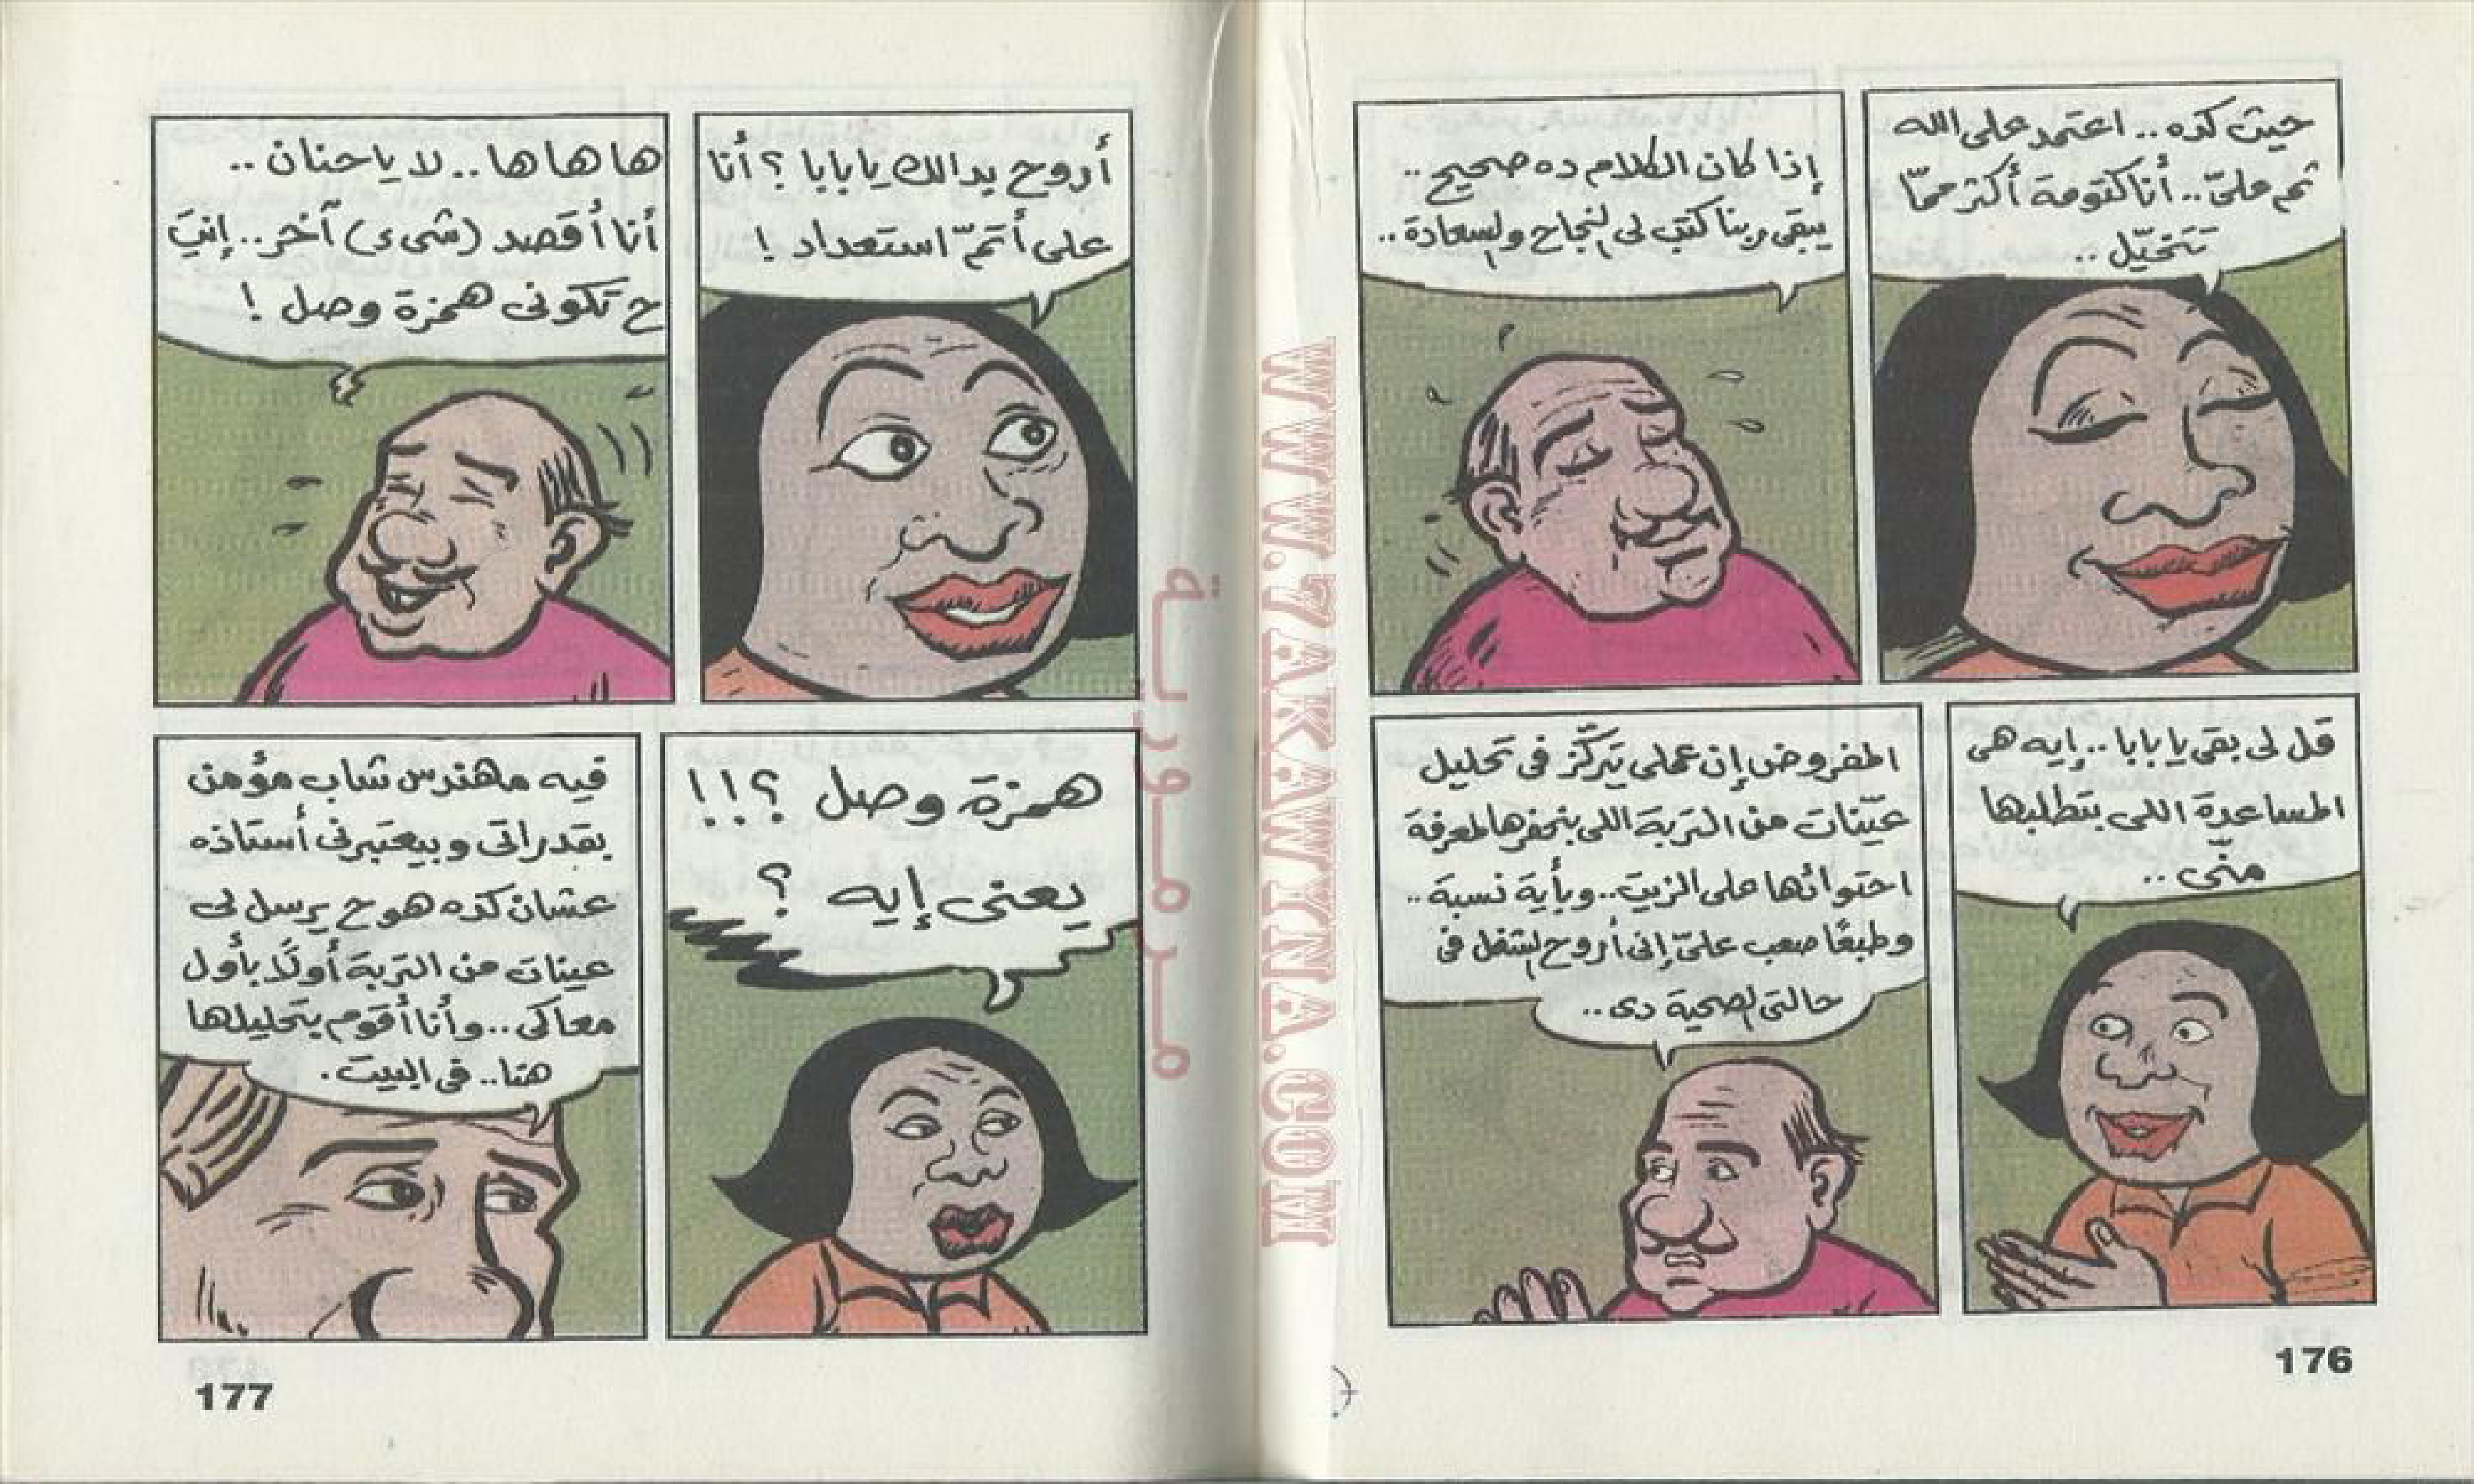 حيث كده.. اعتمد على الله
ثم علىّ.. أنا كتومة أكثر ممّا
تتخيّل..
إذا كان الكلام ده صحيح..
يبقى ربنا كتب لى النجاح والسعادة..
قل لى بقى يا بابا.. إيه هى
المساعدة اللى بتطلبها
منّى..
المفروض إن عملى يتركّز فى تحليل
عيّنات من التربة اللى بنحفرها لمعرفة
احتوائها على الزيت.. وبأية نسبة..
وطبعًا صعب علىّ إنى أروح لشغل فى
حالتى الصحية دى..
176
أروح بدالك يا بابا ؟ أنا
على أتمّ استعداد !
ها ها ها.. لا يا حنان..
أنا أقصد (شىء) آخر.. إنتِ
ح تكونى همزة وصل !
همزة وصل ؟!!
يعنى إيه ؟
فيه مهندس شاب مؤمن
بقدراتى وبيعتبرنى أستاذه
عشان كده هو ح يرسل لى
عينات من التربة أولًا بأول
معاكى.. وأنا أقوم بتحليلها
هنا.. فى البيت.
177
WWW.7AKAWINA.COM
مرمورية